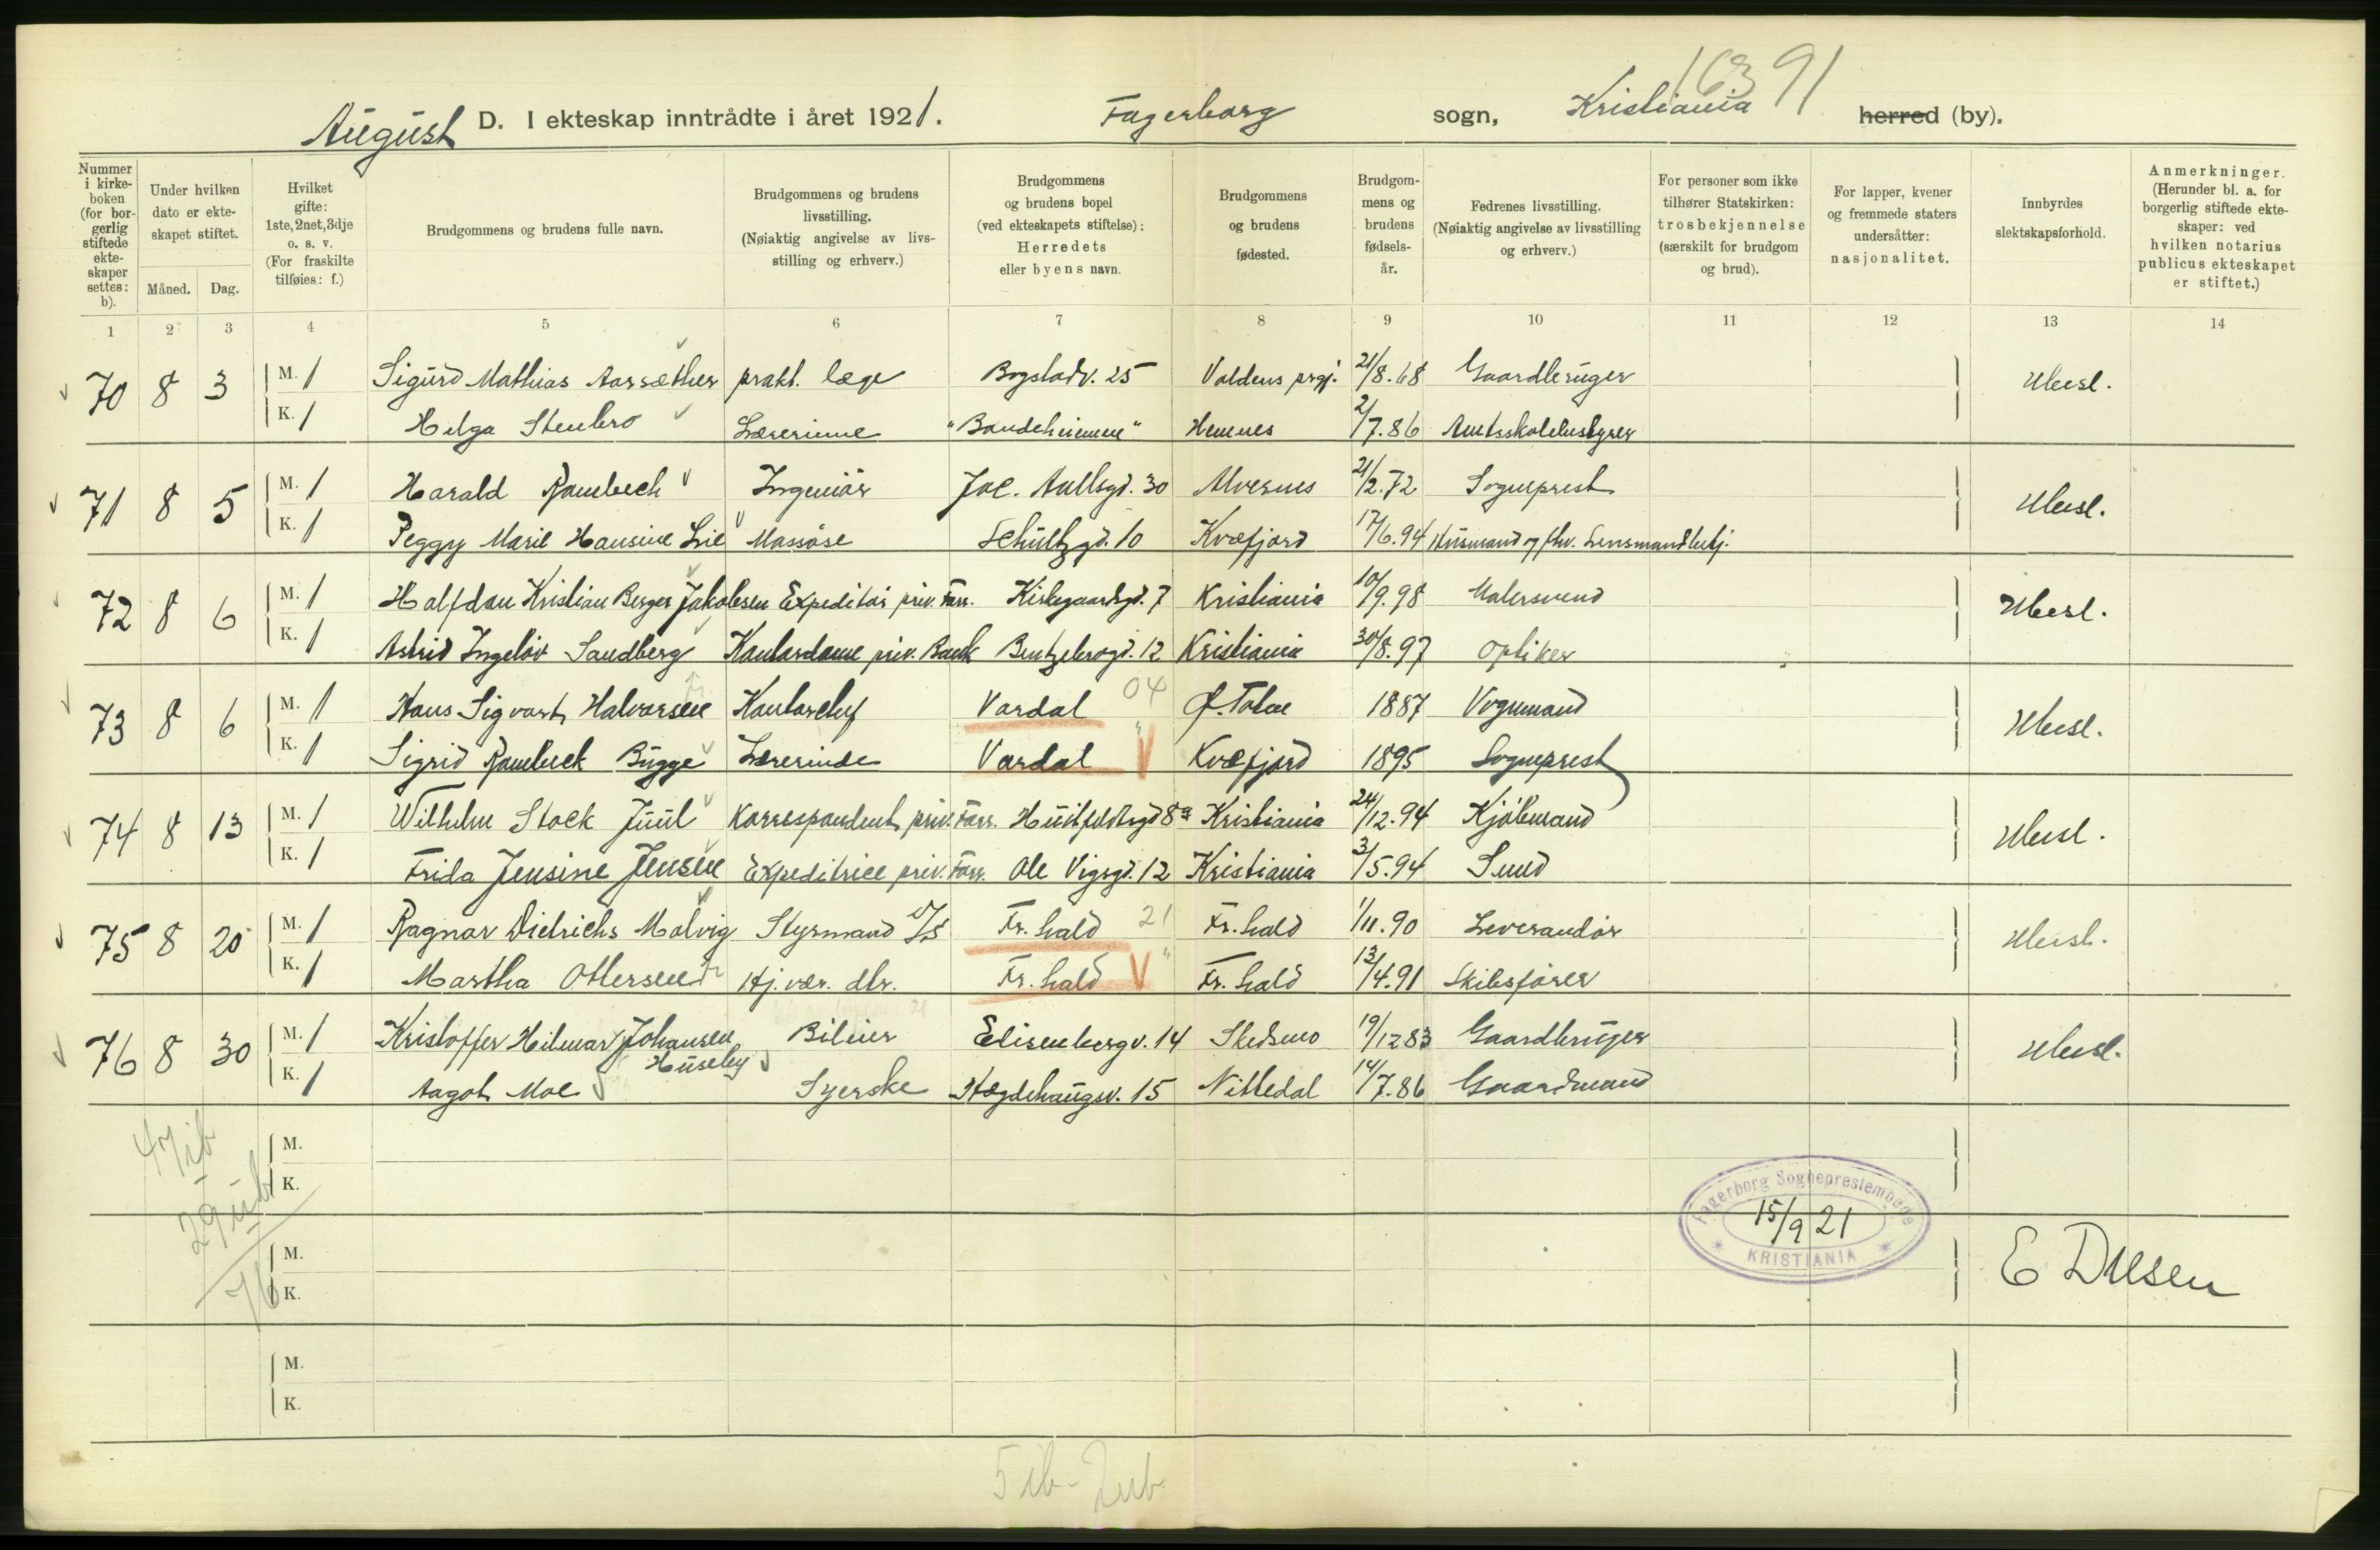 163 91
August D. I ekteskap inntrådte i året 1921. Fagerborg sogn, Kristiania herred (by).
Nummer i kirkeboken (for borgerlig stiftede ekteskaper settes: b).
Under hvilken dato er ekteskapet stiftet.
Måned. Dag.
Hvilket gifte: 1ste, 2net, 3dje o. s. v. (For fraskilte tilføies: f.)
Brudgommens og brudens fulle navn.
Brudgommens og brudens livsstilling. (Nøiaktig angivelse av livsstilling og erhverv.)
Brudgommens og brudens bopel (ved ekteskapets stiftelse): Herredets eller byens navn.
Brudgommens og brudens fødested.
Brudgommens og brudens fødselsår.
Fedrenes livsstilling. (Nøiaktig angivelse av livsstilling og erhverv.)
For personer som ikke tilhører Statskirken: trosbekjennelse (særskilt for brudgom og brud).
For lapper, kvener og fremmede staters undersåtter: nasjonalitet.
Innbyrdes slektskapsforhold.
Anmerkninger. (Herunder bl. a. for borgerlig stiftede ekteskaper: ved hvilken notarius publicus ekteskapet er stiftet.)
1 2 3 4 5 6 7 8 9 10 11 12 13 14
70 8 3 M. 1 Sigurd Mathias Aarsæther prakt. læge Bogstadv. 25 Voldens prgj. 21/8.68 Gaardbruger Ubesl.
K. 1 Helga Stenbro Lærerinne "Bondeheimen" Hemnes 2/7.86 Amtsskolebestyrer
71 8 5 M. 1 Harald Rambech Ingeniør Jac. Aallsgd. 30 Alversund 21/2.72 Sogneprest Ubesl.
K. 1 Peggy Marie Hansine Lie Massøse Schultzgd. 10 Kvæfjord 17/6.94 Husmand og fhv. Lensmandbetj.
72 8 6 M. 1 Halfdan Kristian Berger Jakobsen Expeditør priv. Forr. Kirkegaardsgd. 7 Kristiania 10/9.98 Malersvend Ubesl.
K. 1 Astrid Ingeløv Sandberg Kontordame priv. Bank Bentzebrogd. 12 Kristiania 30/8.97 Optiker
73 8 6 M. 1 Hans Sigvart Halvorsen Kontorchef Vardal 04 Ø. Toten 1887 Vognmand Ubesl.
K. 1 Sigrid Rambech Bugge Lærerinde Vardal " Kvæfjord 1895 Sogneprest
74 8 13 M. 1 Wilhelm Stock Juul Korrespondent priv. Forr. Huitfeldtsgd 8a Kristiania 24/12.94 Kjøbmand Ubesl.
K. 1 Frida Jensine Jensen Expeditrice priv. Forr. Ole Vigsgd. 12 Kristiania 3/5.94 Smed
75 8 20 M. 1 Ragnar Dietrichs Malvig Styrmand D/S Fr. hald 21 Fr. hald 1/11.90 Leverandør Ubesl.
K. 1 Martha Ottersen Hj. vær. dtr. Fr. hald " Fr. hald 13/4.91 Skibsfører
76 8 30 M. 1 Kristoffer Hilmar Johansen Huseby Bileier Elisenbergv. 14 Skedsmo 19/12 83 Gaardbruger Ubesl.
K. 1 Aagot Moe Syerske Hegdehaugsv. 15 Nittedal 14/7.86 Gaardmand
47 ib
29 ub
76
M.
K.
M.
K.
M.
K.
Fagerborg Sogneprestembede
15/9 21
KRISTIANIA
5 ib - 2 ub